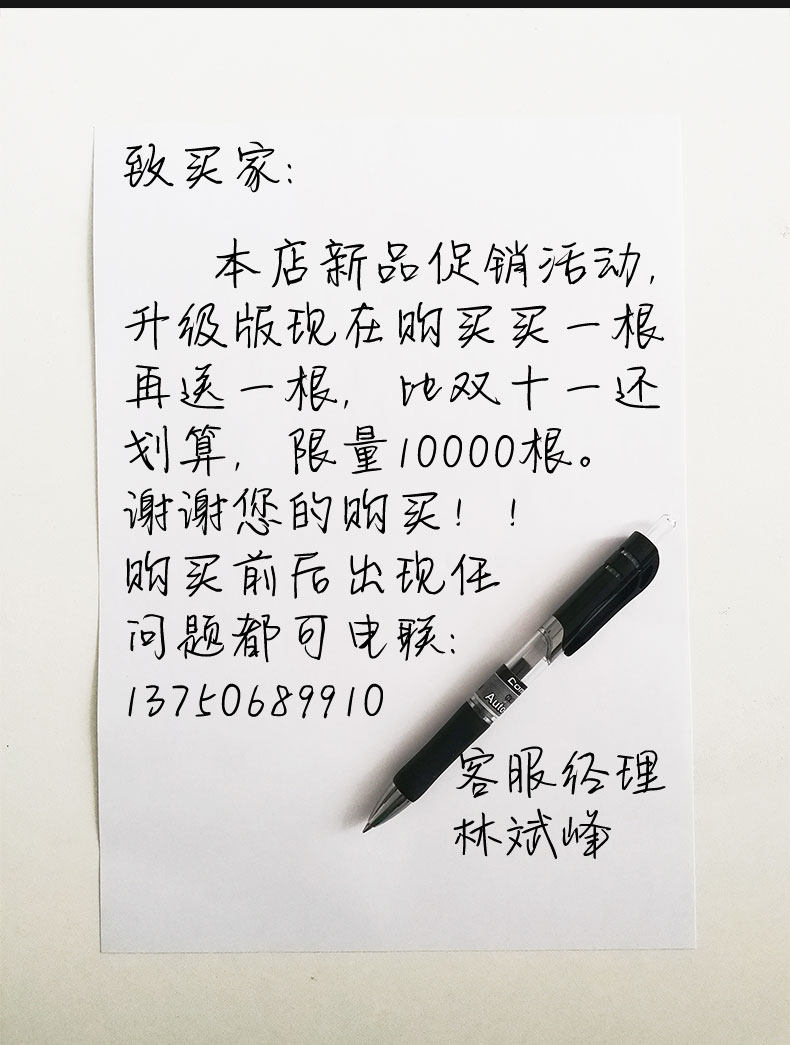 致买家：
本店新品促销活动，
升级版现在购买买一根
再送一根，比双十一还
划算，限量10000根。
谢谢您的购买！！
购买前后出现任
问题都可电联：
13750689910
客服经理
林斌峰